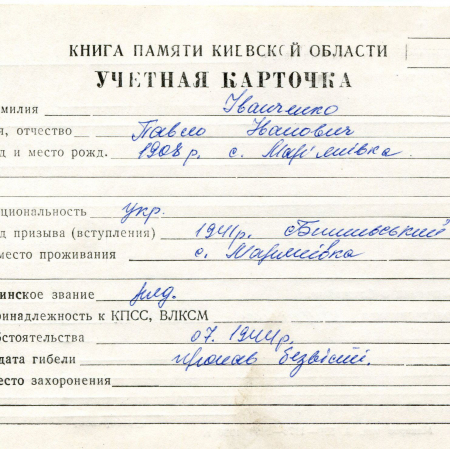 КНИГА ПАМЯТИ КИЕВСКОЙ ОБЛАСТИ
УЧЕТНАЯ КАРТОЧКА
амилия Іванченко
я, отчество Павло Іванович
д и место рожд. 1908 р. с.
циональность укр.
д призыва (вступления) 1941 р.
место проживания с.
инское звание
ринадлежность к КПСС, ВЛКСМ
бстоятельства 07. 1944 р.
дата гибели пропав безвісти.
есто захоронения